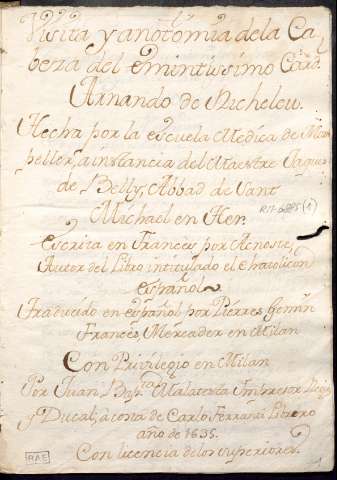 Visita y anotomia de la Ca
beza del eminentissimo Card.l
Arnando de Richeleu.
Hecha por la escuela Medica de Mom
peller, a instancia del Maestre Jaques
de Belly, Abbad de Sant
Michael en Her.
RM-6895(1)
Escrita en Frances por Acnoste,
Autor del Libro intitulado el Chatolicon
español
Traducido en español por Pierres Gemin
Frances, Mercader en Milan
Con Privilegio en Milan
Por Juan Bap.ta Malatesta Impresor Regio
y Ducal, a costa de Carlo Ferranti Librero
año de 1635.
Con licencia de los superiores.
RAE